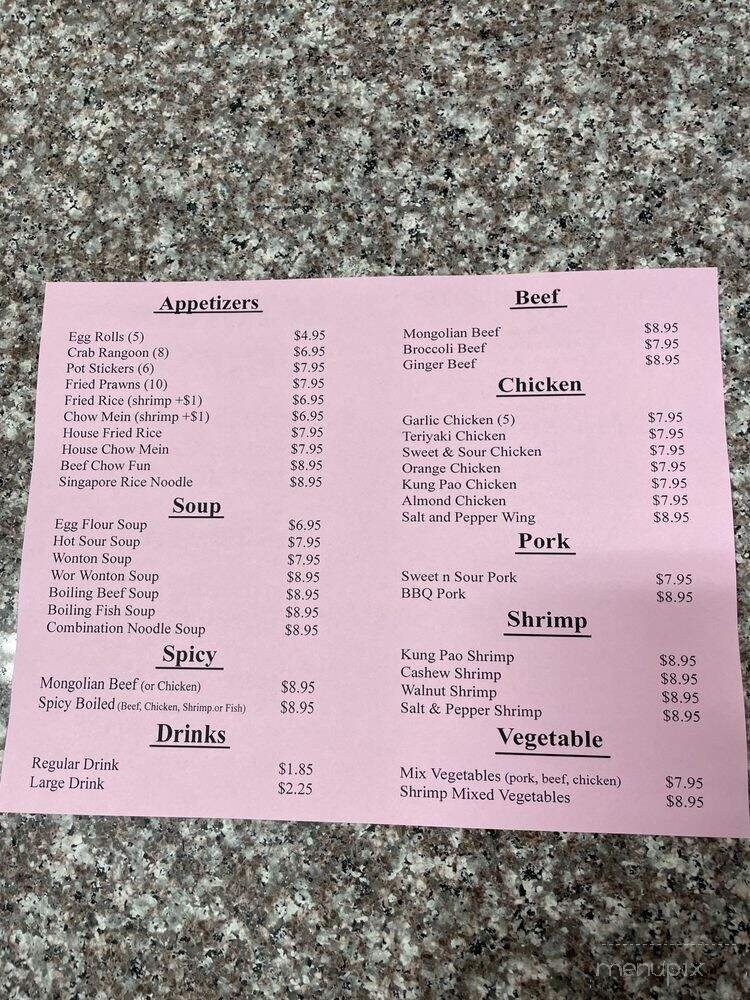 Appetizers
Egg Rolls (5) $4.95
Crab Rangoon (8) $6.95
Pot Stickers (6) $7.95
Fried Prawns (10) $7.95
Fried Rice (shrimp +$1) $6.95
Chow Mein (shrimp +$1) $6.95
House Fried Rice $7.95
House Chow Mein $7.95
Beef Chow Fun $8.95
Singapore Rice Noodle $8.95
Soup
Egg Flour Soup $6.95
Hot Sour Soup $7.95
Wonton Soup $7.95
Wor Wonton Soup $8.95
Boiling Beef Soup $8.95
Boiling Fish Soup $8.95
Combination Noodle Soup $8.95
Spicy
Mongolian Beef (or Chicken) $8.95
Spicy Boiled (Beef, Chicken, Shrimp.or Fish) $8.95
Drinks
Regular Drink $1.85
Large Drink $2.25
Beef
Mongolian Beef $8.95
Broccoli Beef $7.95
Ginger Beef $8.95
Chicken
Garlic Chicken (5) $7.95
Teriyaki Chicken $7.95
Sweet & Sour Chicken $7.95
Orange Chicken $7.95
Kung Pao Chicken $7.95
Almond Chicken $7.95
Salt and Pepper Wing $8.95
Pork
Sweet n Sour Pork $7.95
BBQ Pork $8.95
Shrimp
Kung Pao Shrimp $8.95
Cashew Shrimp $8.95
Walnut Shrimp $8.95
Salt & Pepper Shrimp $8.95
Vegetable
Mix Vegetables (pork, beef, chicken) $7.95
Shrimp Mixed Vegetables $8.95
menupix